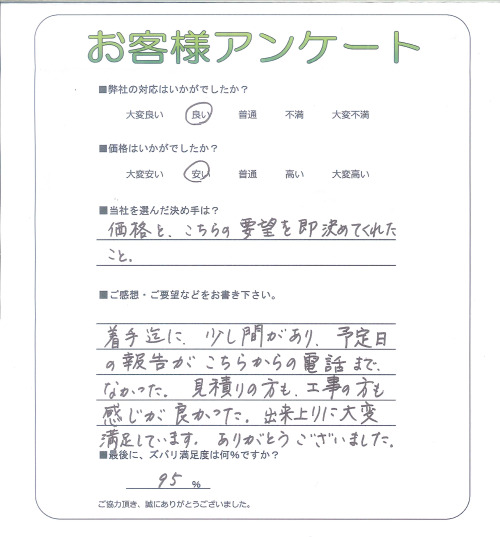 お客様アンケート
■弊社の対応はいかがでしたか?
大変良い 良い 普通 不満 大変不満
■価格はいかがでしたか?
大変安い 安い 普通 高い 大変高い
■当社を選んだ決め手は?
価格と、こちらの要望を即決めてくれた
こと。
■ご感想・ご要望などをお書き下さい。
着手迄に、少し間があり、予定日
の報告がこちらからの電話まで、
なかった。見積りの方も、工事の方も
感じが良かった。出来上りに大変
満足しています。ありがとうございました。
■最後に、ズバリ満足度は何%ですか?
95 %
ご協力頂き、誠にありがとうございました。